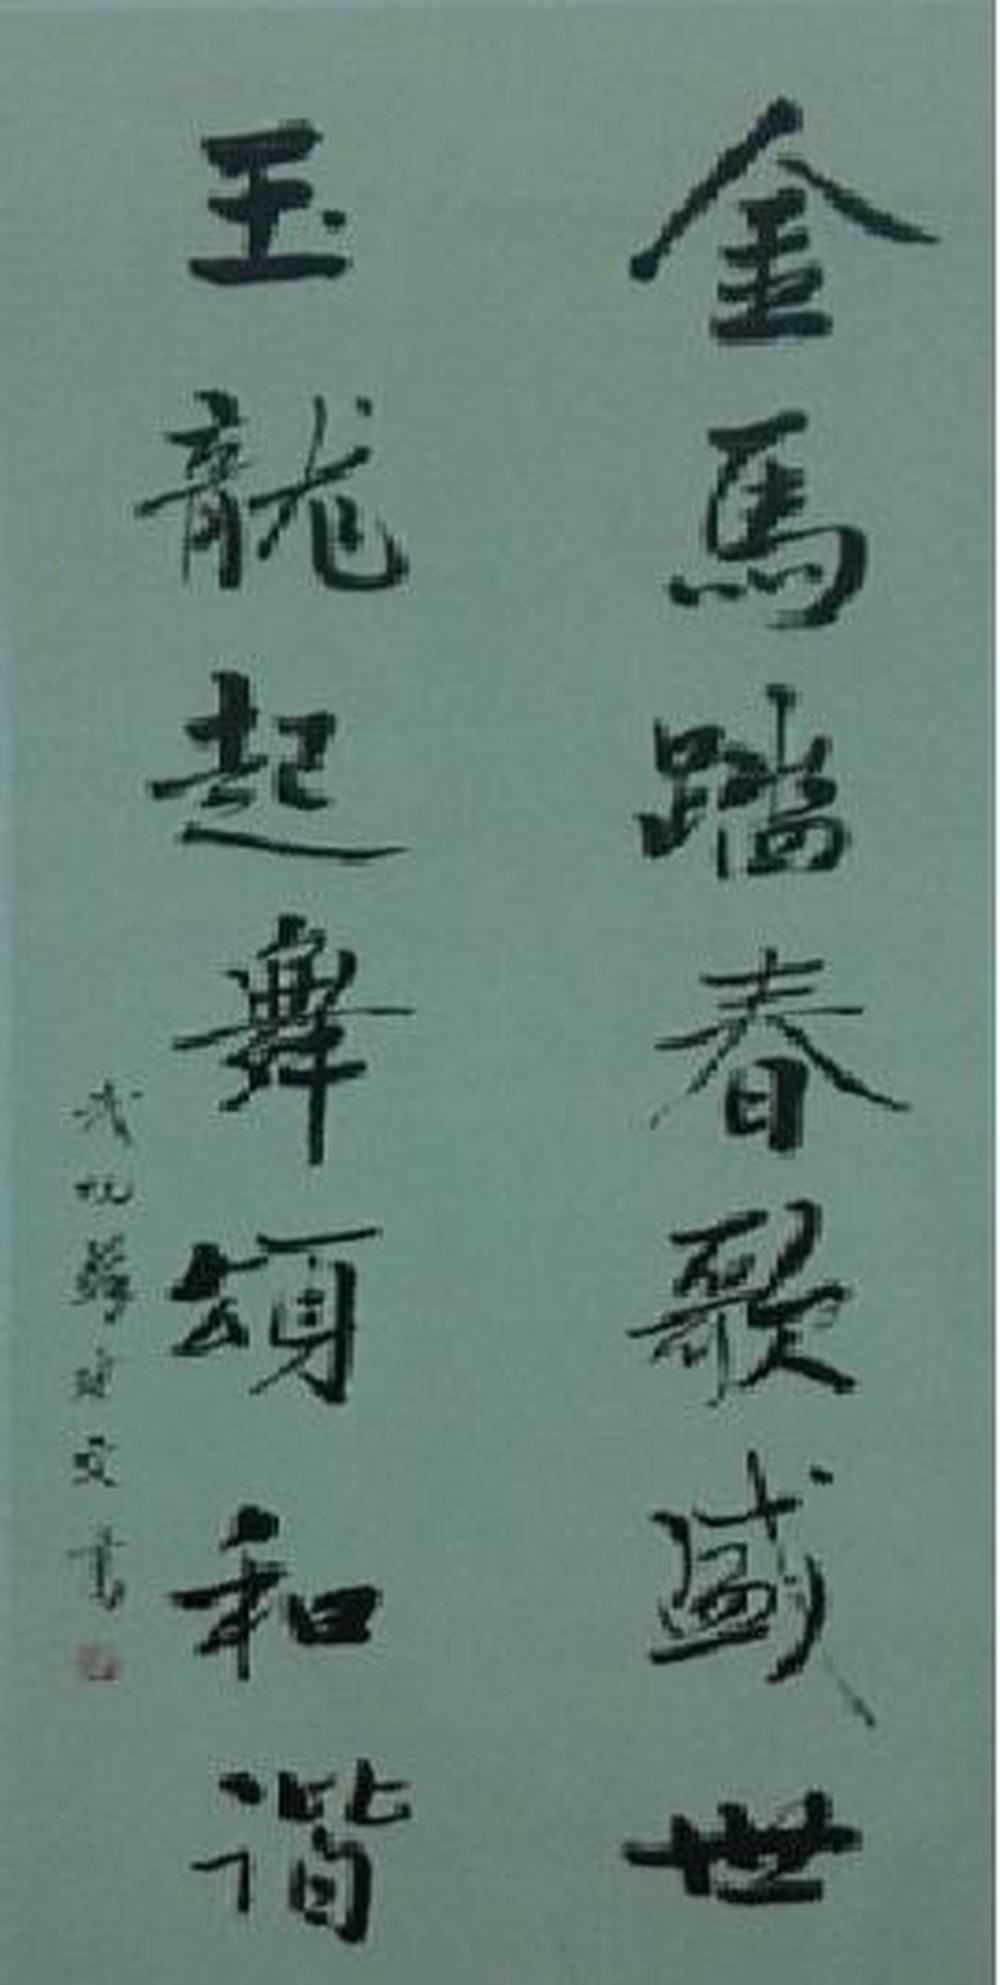 金馬踏春歌盛世
玉龍起舞頌和諧